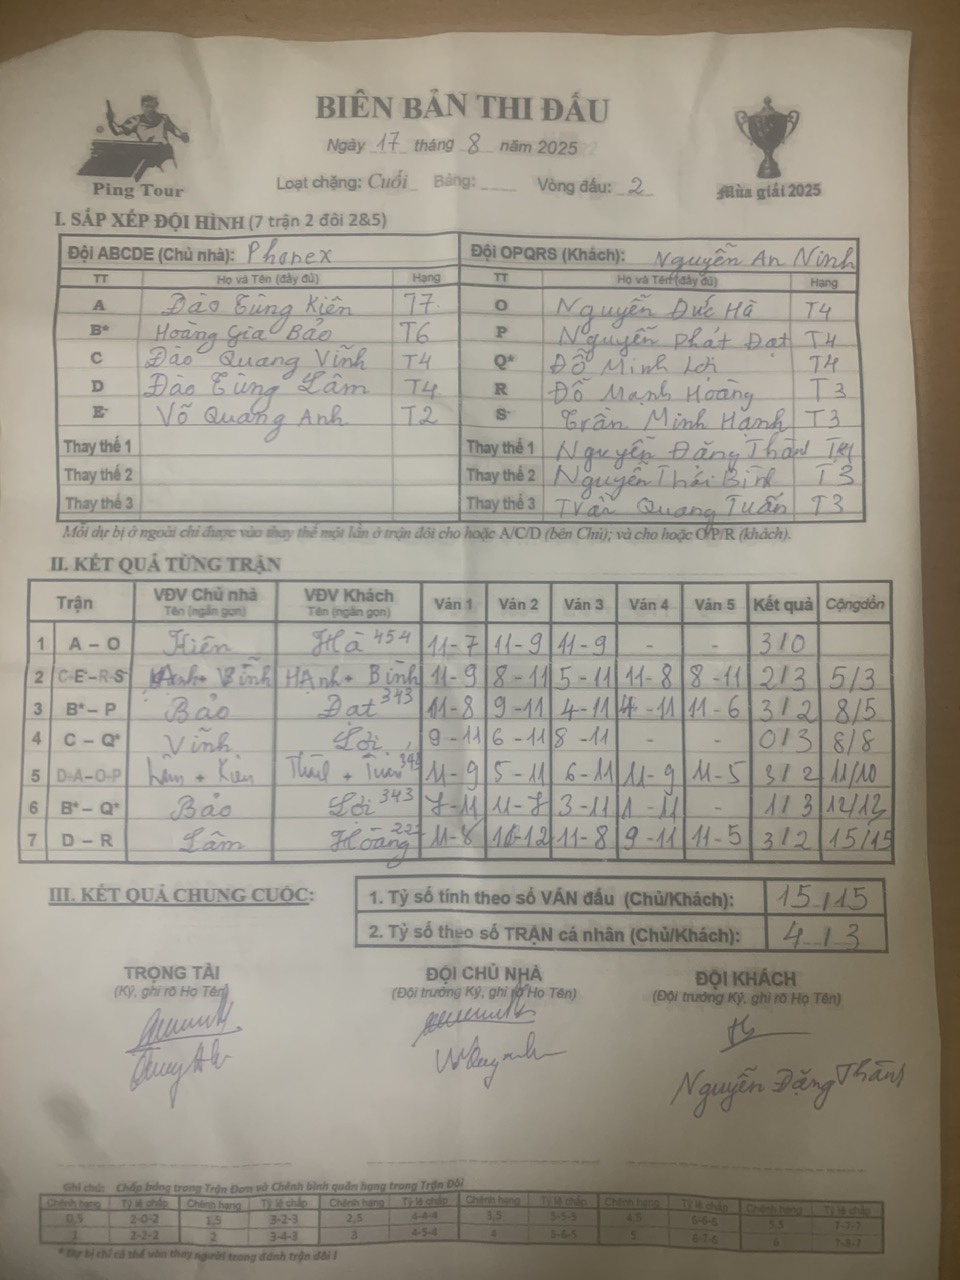 BIÊN BẢN THI ĐẤU
Ngày 17 tháng 8 năm 2025
Ping Tour
Loạt chặng: Cuối Bảng: Vòng đấu: 2
Mùa giải 2025
I. SẮP XẾP ĐỘI HÌNH (7 trận 2 đôi 2&5)
Đội ABCDE (Chủ nhà): Phonex Đội OPQRS (Khách): Nguyễn An Ninh
TT Họ và Tên (đầy đủ) Hạng TT Họ và Tên (đầy đủ) Hạng
A Đào Tùng Kiên T7 O Nguyễn Đức Hà T4
B* Hoàng Gia Bảo T6 P Nguyễn Phát Đạt T4
C Đào Quang Vĩnh T4 Q* Đỗ Minh Lợi T4
D Đào Tùng Lâm T4 R Đỗ Mạnh Hoàng T3
E- Võ Quang Anh T2 S- Trần Minh Hạnh T3
Thay thế 1 Thay thế 1 Nguyễn Đăng Thành
Thay thế 2 Thay thế 2 Nguyễn Thái Bình T3
Thay thế 3 Thay thế 3 Trần Quang Tuấn T3
Mỗi dự bị ở ngoài chỉ được vào thay thế một lần ở trận đôi cho hoặc A/C/D (bên Chủ); và cho hoặc O/P/R (khách).
II. KẾT QUẢ TỪNG TRẬN
Trận VĐV Chủ nhà Tên (ngắn gọn) VĐV Khách Tên (ngắn gọn) Ván 1 Ván 2 Ván 3 Ván 4 Ván 5 Kết quả Cộng dồn
1 A – O Kiên Hà 454 11-7 11-9 11-9 - - 3/0
2 C-E-R-S Anh + Vĩnh HAnh + Bình 11-9 8-11 5-11 11-8 8-11 2/3 5/3
3 B* – P Bảo Đạt 343 11-8 9-11 4-11 -11 11-6 3/2 8/5
4 C – Q* Vĩnh Lợi 9-11 6-11 8-11 - - 0/3 8/8
5 D-A-O-P Lâm + Kiên + 11-9 5-11 6-11 11-9 11-5 3/2 11/10
6 B* – Q* Bảo Lợi 343 7-11 11-7 3-11 1-11 - 1/3 12/13
7 D – R Lâm Hoàng 11-8 -12 11-8 9-11 11-5 3/2 15/15
III. KẾT QUẢ CHUNG CUỘC:
1. Tỷ số tính theo số VÁN đấu (Chủ/Khách): 15/15
2. Tỷ số theo số TRẬN cá nhân (Chủ/Khách): 4/3
TRỌNG TÀI ĐỘI CHỦ NHÀ ĐỘI KHÁCH
(Ký, ghi rõ Họ Tên) (Đội trưởng Ký, ghi rõ Họ Tên) (Đội trưởng Ký, ghi rõ Họ Tên)
Nguyễn Đặng Thành
Ghi chú: Chấp bóng trong Trận Đơn và Chênh bình quân hạng trong Trận Đôi
Chênh hạng Tỷ lệ chấp Chênh hạng Tỷ lệ chấp Chênh hạng Tỷ lệ chấp Chênh hạng Tỷ lệ chấp Chênh hạng Tỷ lệ chấp Chênh hạng Tỷ lệ chấp
0,5 2-0-2 1,5 3-2-3 2,5 4-4-4 3,5 5-5-5 4,5 6-6-6 5,5 7-7-7
1 2-2-2 2 3-4-3 3 4-5-4 4 5-6-5 5 6-7-6 6 7-8-7
* Dự bị chỉ có thể vào thay người trong đánh trận đôi !